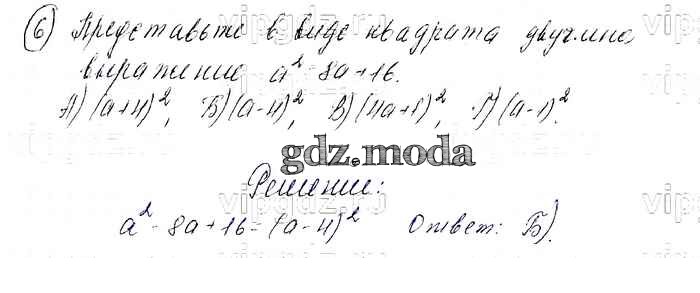 6) Представьте в виде квадрата двучлена
выражение a² - 8a + 16.
А) (a+4)², Б) (a-4)², В) (4a+1)², Г) (a-1)².
gdz.moda
Решение:
a² - 8a + 16 = (a - 4)² Ответ: Б).